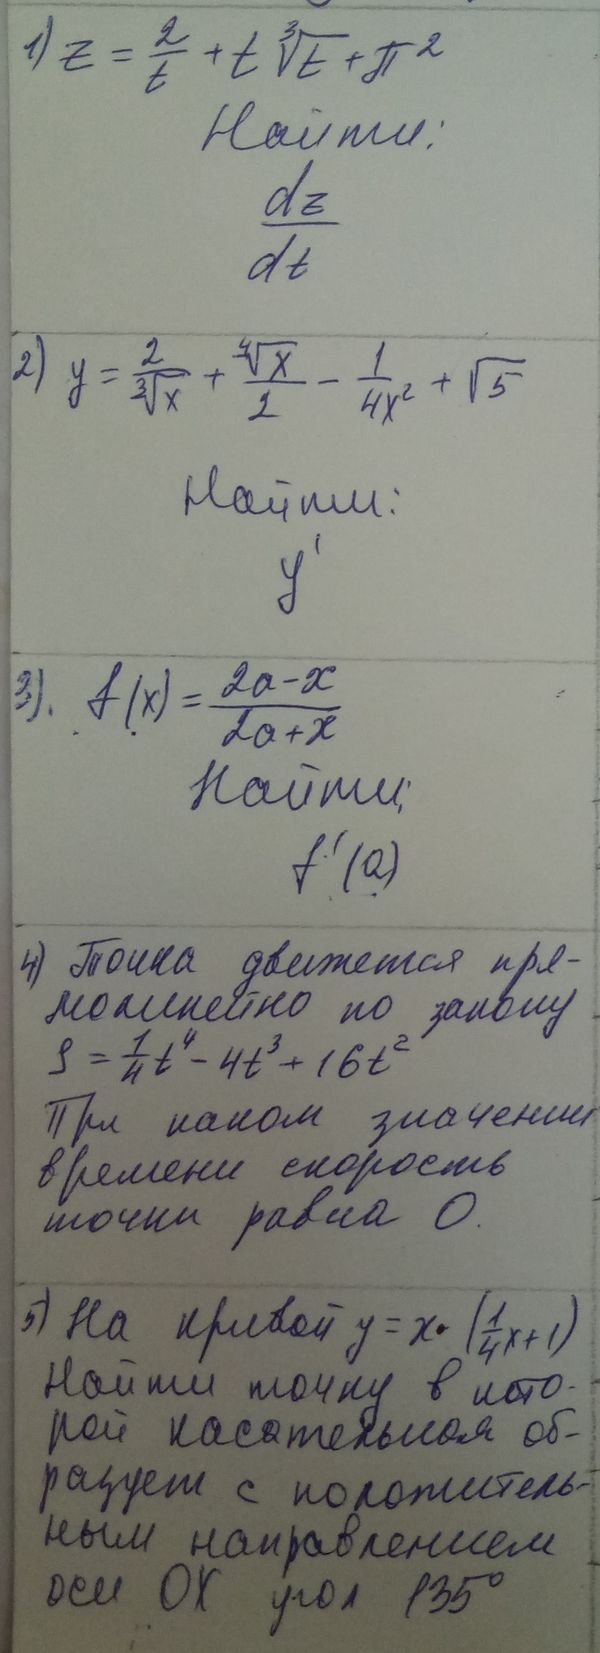 1) z = 2/t + t ∛t + π²
Найти:
dz/dt
2) y = 2/∛x + ∜x/2 − 1/4x² + √5
Найти:
y'
3). f(x) = 2a−x/2a+x
Найти:
f'(a)
4) Точка движется пря-
молинейно по закону
S = 1/4 t⁴ − 4t³ + 16t²
При каком значении
времени скорость
точки равна 0.
5) На кривой y = x·(1/4x+1)
Найти точку в кото-
рой касательная об-
разует с положитель-
ным направлением
оси OX угол 135°